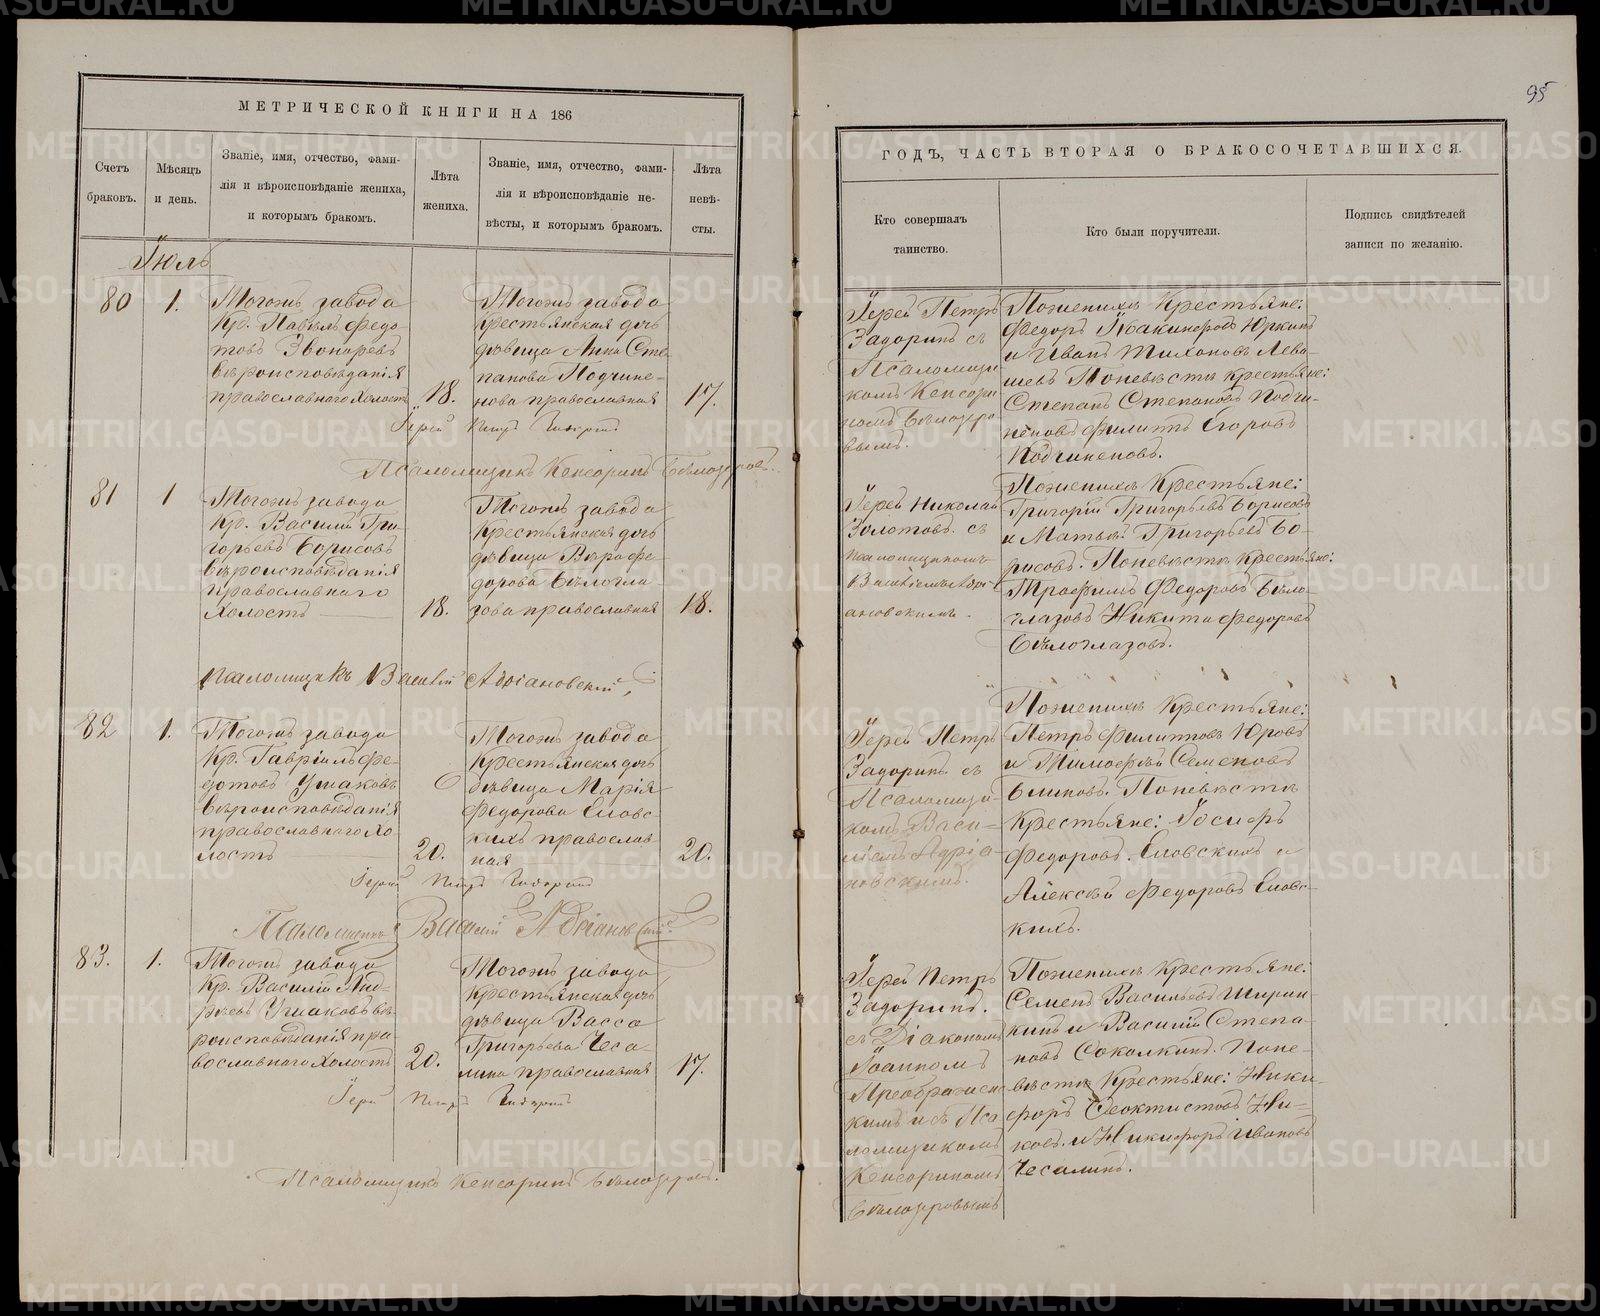 МЕТРИЧЕСКОЙ КНИГИ НА 186
Счетъ браковъ.
Мѣсяцъ и день.
Званіе, имя, отчество, фами-
лія и вѣроисповѣданіе жениха,
и которымъ бракомъ.
Лѣта жениха.
Званіе, имя, отчество, фами-
лія и вѣроисповѣданіе не-
вѣсты, и которымъ бракомъ.
Лѣта невѣ-
сты.
Іюль
80
1.
Тогожъ завода
Кр. Павелъ Федо-
товъ Звонаревъ
вѣроисповѣданія
православнаго холостъ
18.
Тогожъ завода
крестьянская дочь
дѣвица Анна Сте-
панова Подчине-
нова православная
17.
Іерей Петръ Задоринъ
Псаломщикъ Кенсоринъ Бѣлозеровъ.
81
1
Тогожъ завода
Кр. Василій Гри-
горьевъ Борисовъ
вѣроисповѣданія
православнаго
холостъ
18.
Тогожъ завода
крестьянская дочь
дѣвица Вѣра Фе-
дорова Бѣлогла-
зова православная
18.
псаломщикъ Василій Адріановскій
82
1.
Тогожъ завода
Кр. Гавріилъ Фе-
дотовъ Ушаковъ
вѣроисповѣданія
православнаго хо-
лостъ
20.
Тогожъ завода
крестьянская дочь
дѣвица Марія
Федорова Еловс-
кихъ православ-
ная
20.
Іерей Петръ Задоринъ
Псаломщикъ Василій Адріановскій
83.
1.
Тогожъ завода
Кр. Василій Анд-
реевъ Ушаковъ вѣ-
роисповѣданія пра-
вославнаго холостъ
20.
Тогожъ завода
крестьянская дочь
дѣвица Васса
Григорьева Чеса-
лина православная
17.
Іерей Петръ Задоринъ
Псаломщикъ Кенсоринъ Бѣлозеровъ.
95
ГОДЪ, ЧАСТЬ ВТОРАЯ О БРАКОСОЧЕТАВШИХСЯ.
Кто совершалъ
таинство.
Кто были поручители.
Подпись свидѣтелей
записи по желанію.
Іерей Петръ
Задоринъ съ
Псаломщи-
комъ Кенсори-
номъ Бѣлозеро-
вымъ.
По женихѣ Крестьяне:
Федоръ Іоакинфовъ Юркинъ
и Иванъ Тихоновъ Лева-
шевъ По невѣстѣ крестьяне:
Степанъ Степановъ Подчи-
неновъ Филиппъ Егоровъ
Подчиненовъ.
Іерей Николай
Золотовъ съ
псаломщикомъ
Василіемъ Адрі-
ановскимъ.
По женихѣ Крестьяне:
Григорій Григорьевъ Борисовъ
и Матвѣй Григорьевъ Бо-
рисовъ. По невѣстѣ Крестьяне:
Трофимъ Федоровъ Бѣло-
глазовъ Никита Федоровъ
Бѣлоглазовъ.
Іерей Петръ
Задоринъ съ
Псаломщи-
комъ Васи-
ліемъ Адріа-
новскимъ.
По женихѣ Крестьяне:
Петръ Филипповъ Юровъ
и Тимофей Семеновъ
Блиновъ. По невѣстѣ
Крестьяне: Іосифъ
Федоровъ Еловскихъ и
Алексѣй Федоровъ Еловс-
кихъ.
Іерей Петръ
Задоринъ.
съ Діакономъ
Іоанномъ
Преображенс-
кимъ и съ Пса-
ломщикомъ
Кенсориномъ
Бѣлозеровымъ
По женихѣ Крестьяне:
Семенъ Васильевъ Ширин-
кинъ и Василій Степа-
новъ Соколкинъ. По не-
вѣстѣ Крестьяне: Ники-
форъ Феоктистовъ Ни-
ковъ. и Никифоръ Ивановъ
Чесалинъ.
METRIKI.GASO-URAL.RU